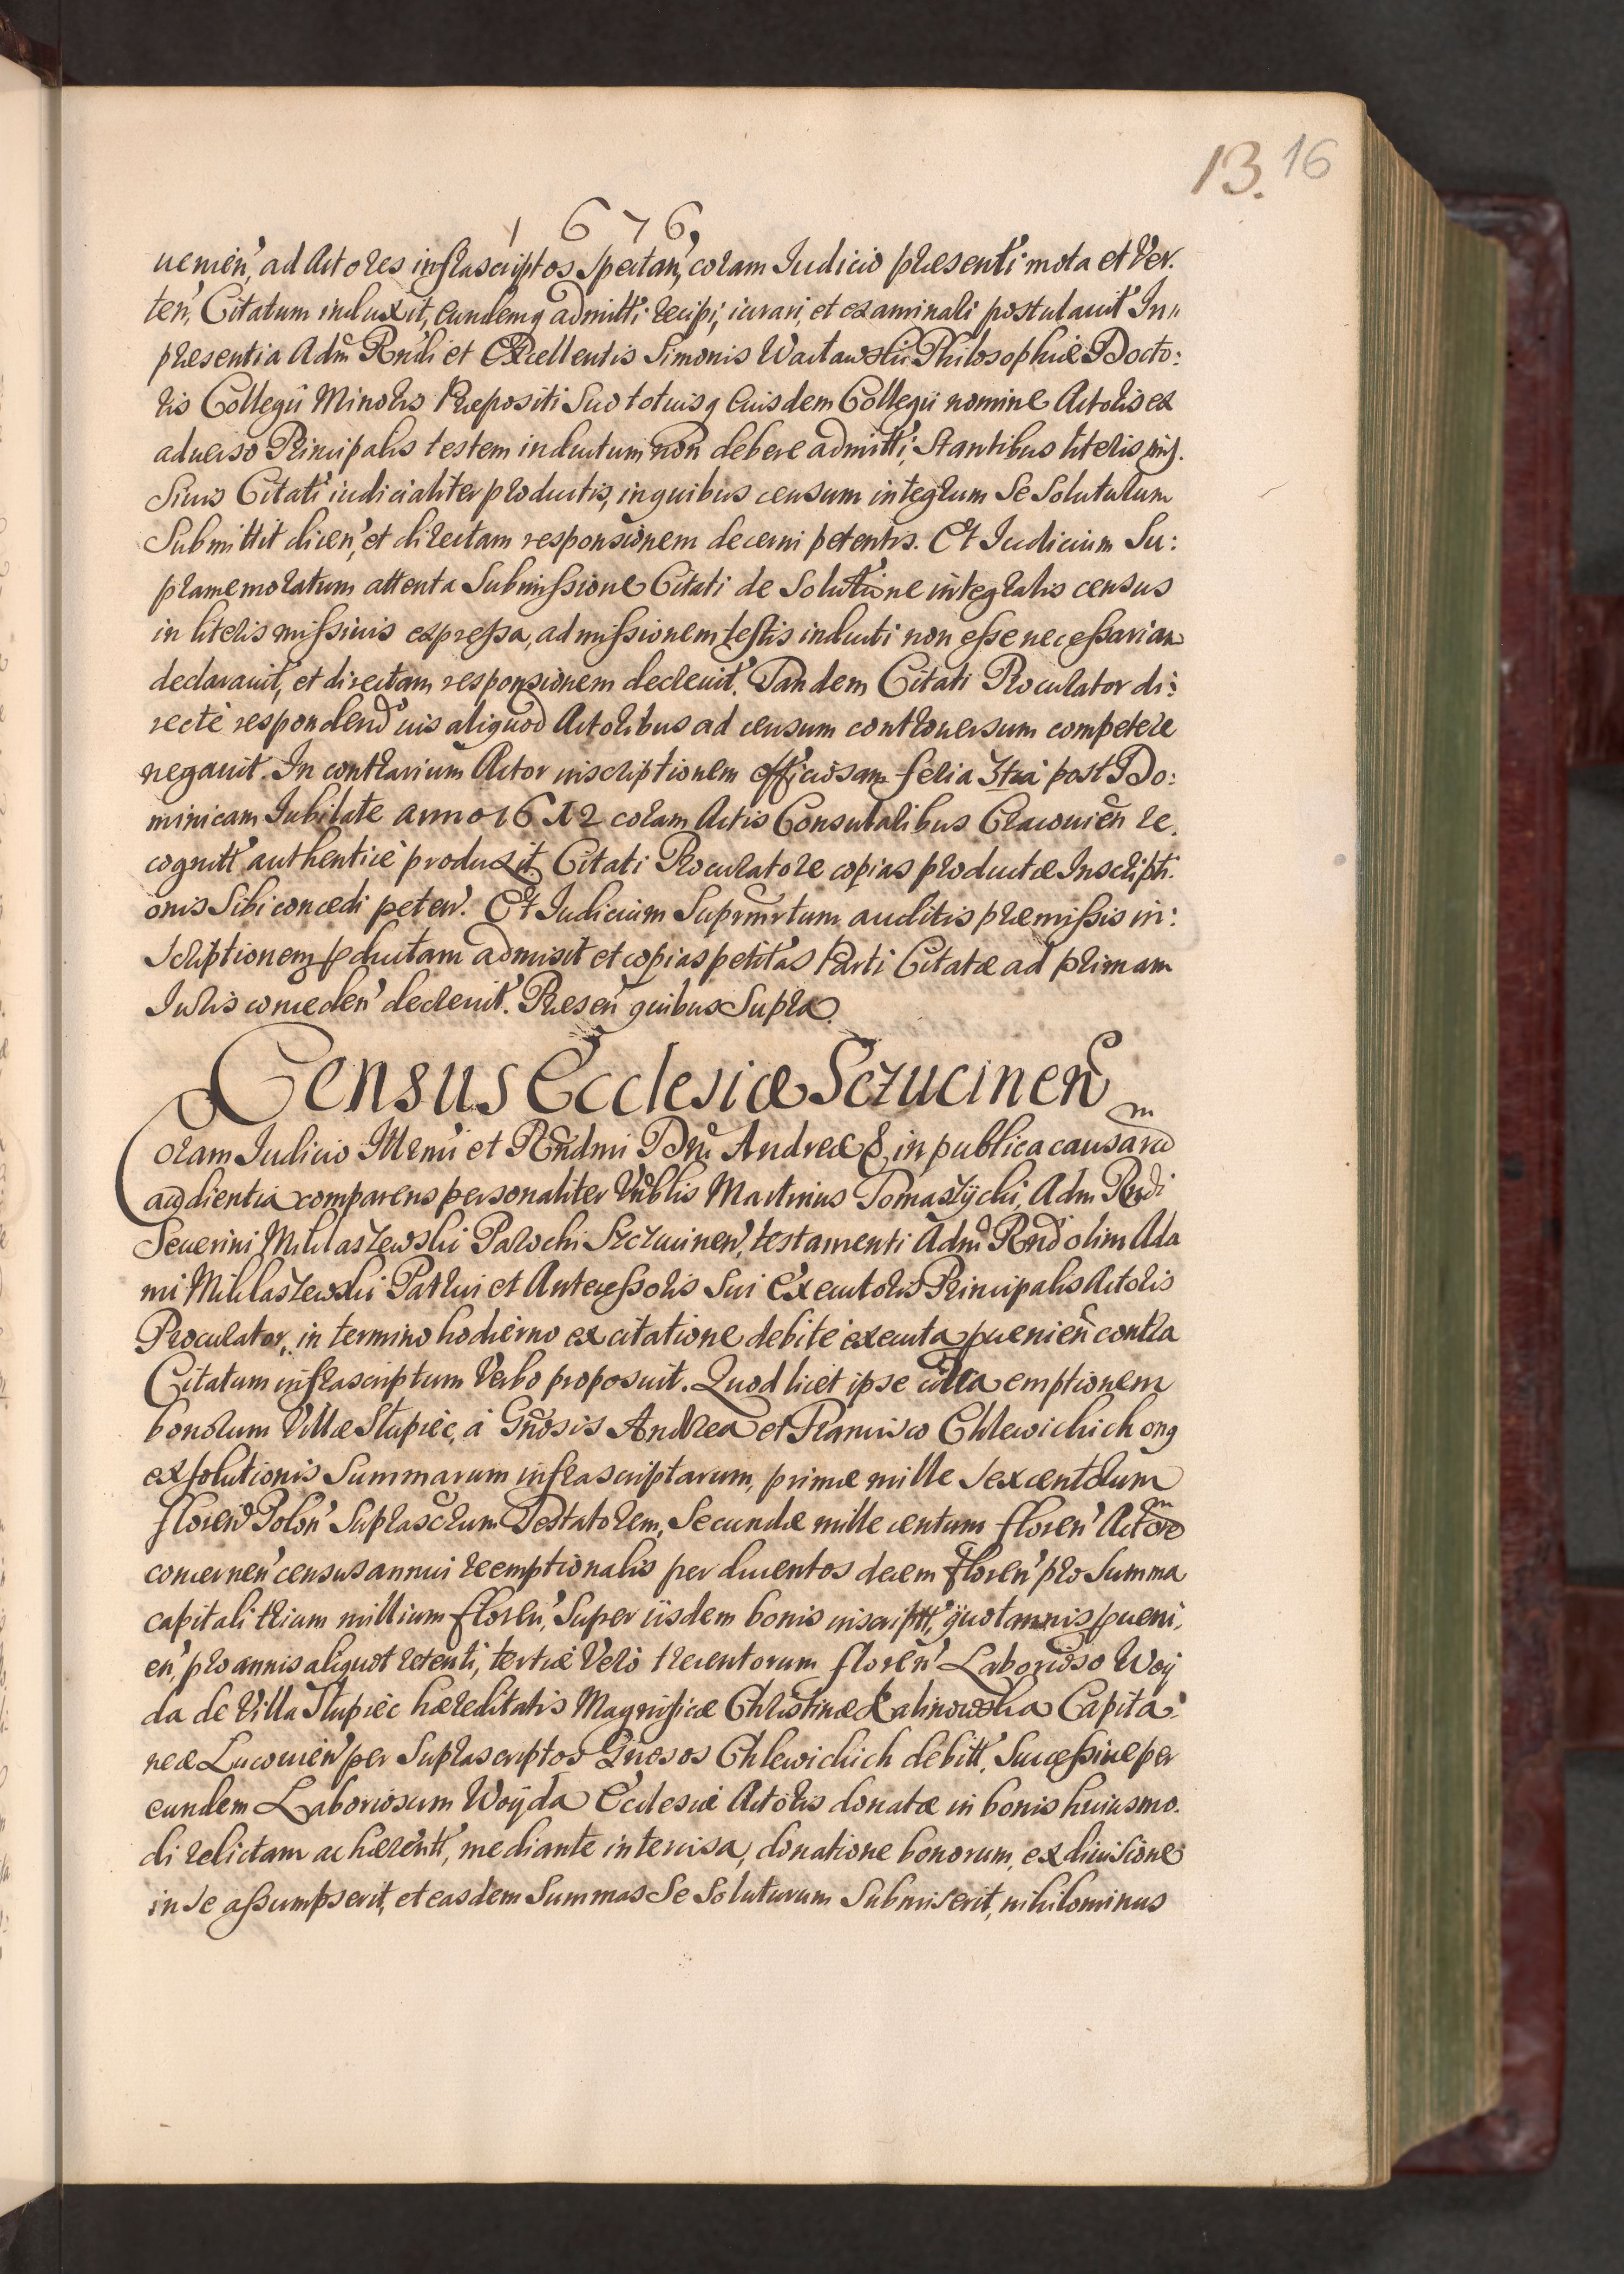 13. 16
1676,
uenien', ad Actores infrascriptos spectan', coram Iudicio praesenti mota et Ver.
ten', Citatum induxit, eundemq admitti recipi, iurari, et examinari postulauit In"
praesentia Adm Rndi et Excellentis Simonis Wactawski Philosophiæ Docto:
ris Collegii Minoris Præpositi Suo totiusq Euisdem Collegii nomine Actoris ex
aduerso Principalis testem inductum non debere admitti, Stantibus literis mis.
siuis Citati iudicialiter productis, in quibus censum integrum Se Soluturum
Submittit dicen', et directam responsionem decerni petentis. Et Iudicium Su:
pramemoratum attenta Submissione Citati de Solutione integralis census
in literis missiuis expressa, admissionem testis inducti non esse necessariam
declarauit, et directam responsionem decreuit. Tandem Citati Procurator di:
rectè respondend' ius aliquod Actoribus ad censum controuersum competere
negauit. In contrarium Actor inscriptionem officiosam feria 3tia post Do:
minicam Iubilate anno 1612 coram Actis Consularibus Cracouien re.
cognitt' authenticè produxit, Citati Procuratore copias productæ Inscripti.
onis Sibi concedi peten'. Et Iudicium Suprmrtum auditis præmissis in:
scriptionem pductam admisit et copias petitas Parti Citatæ ad primam
Iuris conceden' decreuit. Præsen quibus Supra.
Census Ecclesiæ Sczucinen
Coram Iudicio Illrmi et Rndmi Dni Andreæ & in publica causarum
audientia comparens personaliter Vnblis Martinus Tomaszÿcki, Adm Rndi
Seuerini Miklaszewski Parochi Szczucinen', testamenti Adm Rnd olim Ada
mi Miklaszewski Patrui et Antecessoris Sui Executoris Principalis Actoris
Procurator, in termino hodierno ex citatione debitè executa pueniẽn contra
Citatum infrascriptum Verbo proposuit. Quod licet ipse circa emptionem
bonorum Villæ Słupiec, à Gnosis Andrea et Francisco Chlewickich onq
exsolutionis Summarum infrascriptarum, primæ mille sexcentorum
floren' Polon' Suprascrum Testatorem, Secundæ mille centum floren' Actorem
concernen' census annui reemptionalis per ducentos decem floren' pro Summa
capitali trium millium floren', Super iisdem bonis inscriptt', quotannis pueni.
en', pro annis aliquot retenti, tertiæ Verò trecentorum floren' Laborioso Woÿ
da de Villa Słupiec hæreditatis Magnificæ Christinæ Kalinowska Capita:
neæ Lucouien' per Suprascriptos Gnosos Chlewickich debitt', Successiue per
eundem Laboriosum Woÿda Ecclesiæ Actoris donatæ in bonis huiusmo.
di relictam ac hærentt', mediante intercisa, donatione bonorum, ex diuisione
in se assumpserit, et easdem Summas Se Soluturum Submiserit, nihilominus